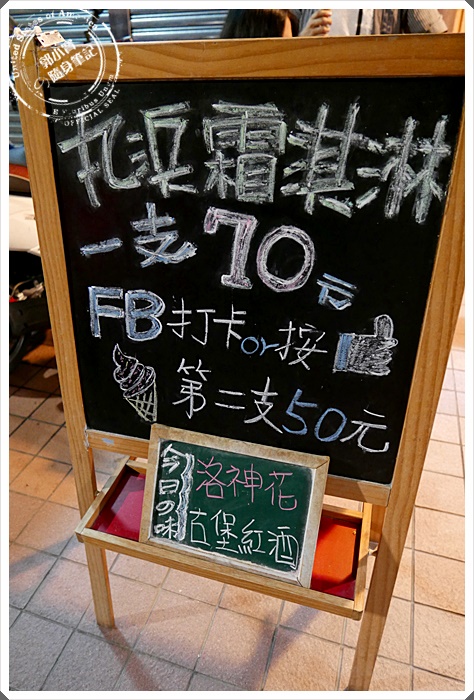 郭小醬
隨身筆記
OFFICIAL SEAL
丸浜霜淇淋
一支70元
FB打卡or按
第二支50元
今日の味
洛神花
古堡紅酒